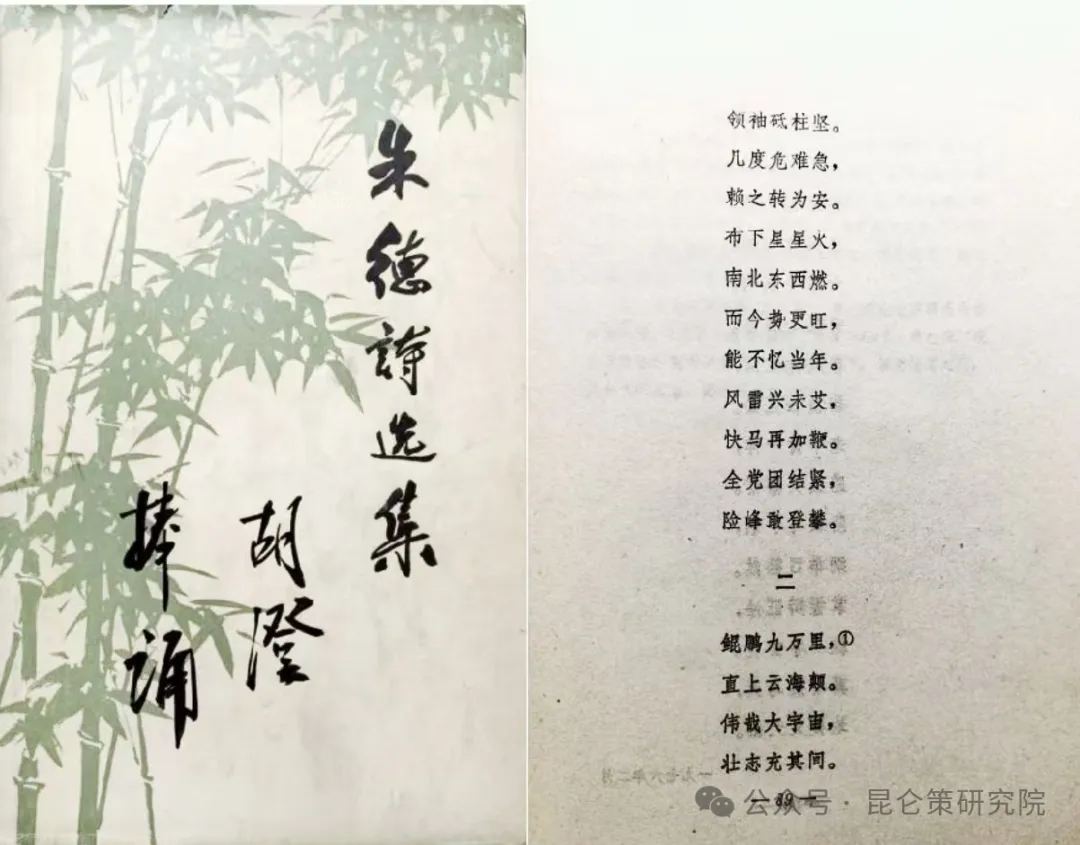 朱德詩选集
胡澄
捧诵
领袖砥柱坚。
几度危难急，
赖之转为安。
布下星星火，
南北东西燃。
而今势更旺，
能不忆当年。
风雷兴未艾，
快马再加鞭。
全党团结紧，
险峰敢登攀。
二
鲲鹏九万里，①
直上云海颠。
伟哉大宇宙，
壮志充其间。
— 89 —
公众号 昆仑策研究院